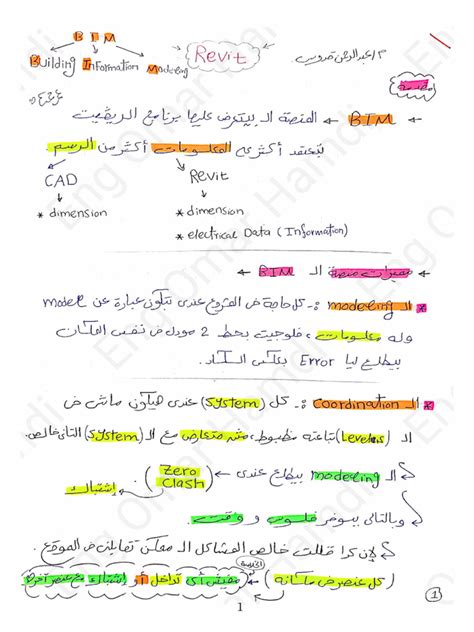 BIM
Building Information Modeling
Revit
م / عبدالرحمن قدوس
مقدمة
BIM ← المنصة الـ بيتعرف عليها برنامج الريڤيت
بتعتمد أكتر على المعلومات أكتر من الرسم.
CAD
Revit
* dimension
* dimension
* electrical Data (Information)
← مميزات منصة الـ BIM ←
* الـ modeling :- كل حاجة في المشروع عندي بتكون عبارة عن model
وله معلومات ، فلو جيت بحط 2 موديل في نفس المكان
بيطلع ليا Error بعكس الكاد.
* الـ Coordination :- كل (System) عندي هيكون ماشي في
الـ (Levels) بتاعته مظبوط، مش متعارض مع الـ (System) التاني خالص.
الـ modeling بيطلع عندي ← (Zero Clash) إشتباك
وبالتالي بيوفر فلوس و وقت
لإن كدا قللت خالص المشاكل الـ ممكن تقابلني في الموقع.
الخلاصة
(كل عنصر في مكانه) ← (مفيش أي تداخل أو إشتباك مع عنصر آخر)
1
1
Eng Omar Hamdi